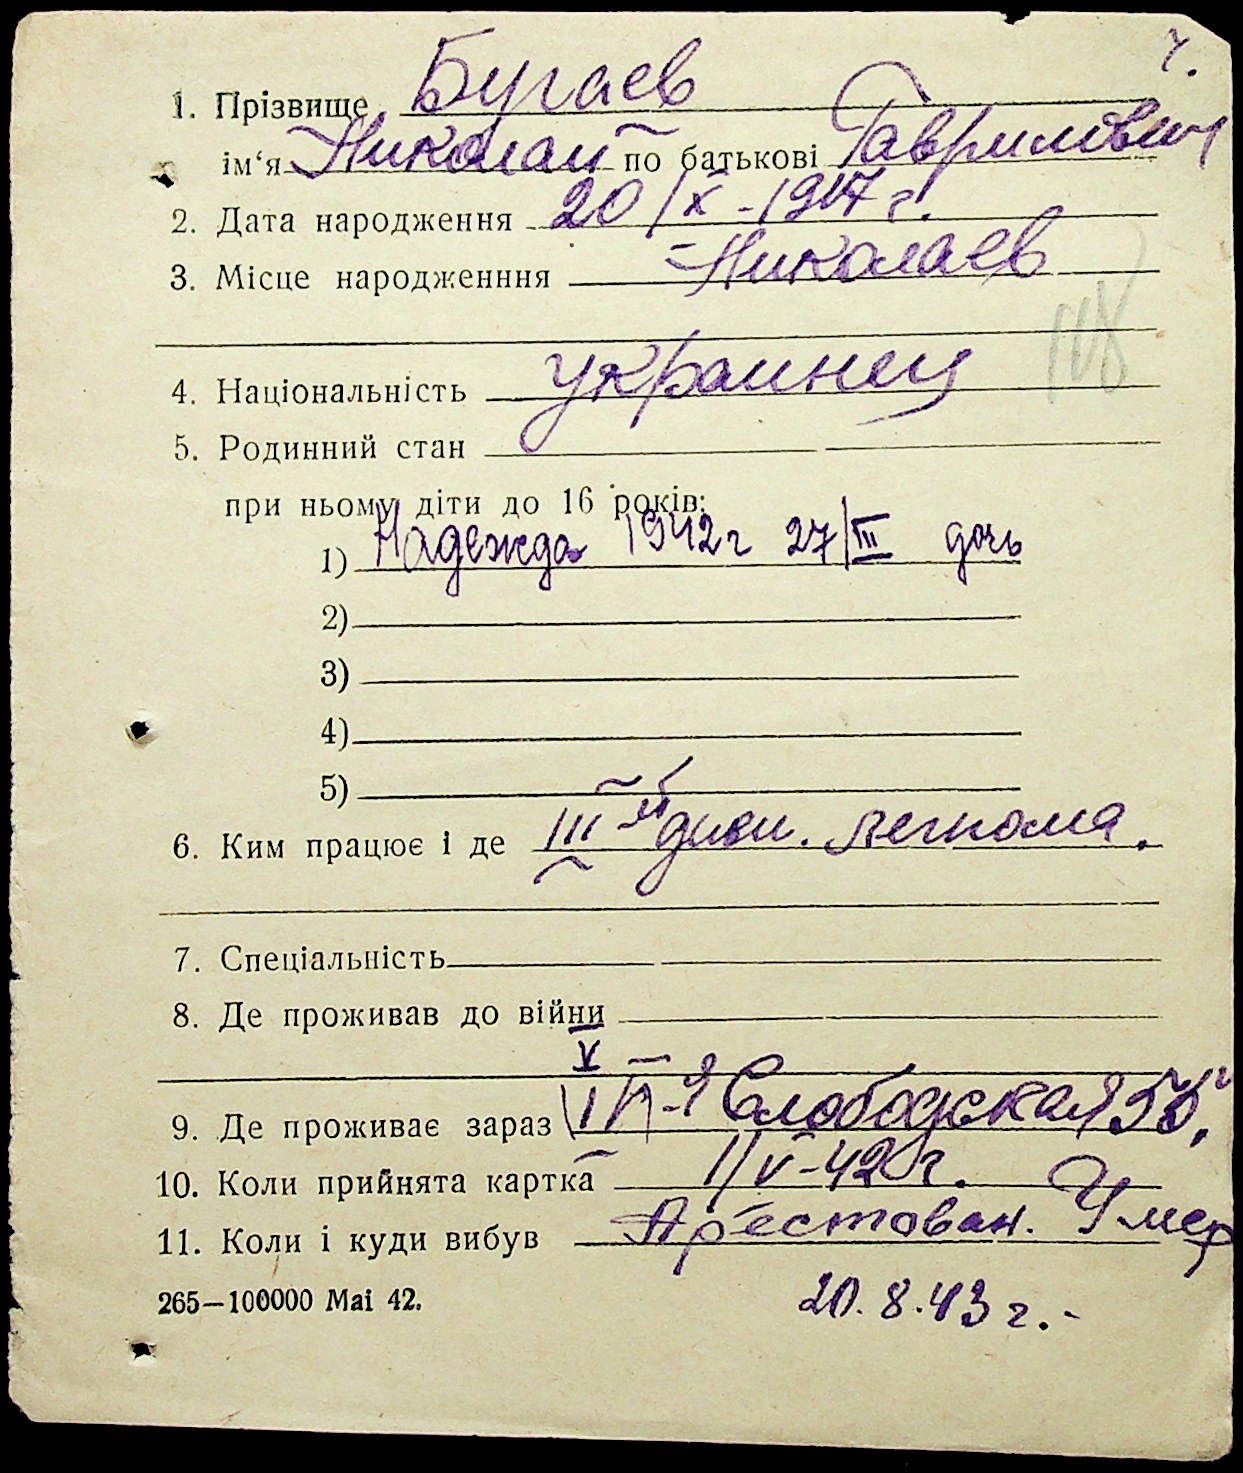 ч.
1. Прізвище Бугаев
ім‘я Николай по батькові Гаврилович
2. Дата народження 20/X-1917 г.
3. Місце народженння Николаев
108
4. Національність украинец
5. Родинний стан
при ньому діти до 16 років:
1) Надежда 1942 г 27/III дочь
2)
3)
4)
5)
6. Ким працює і де III й диви. легкома.
7. Спеціальність
8. Де проживав до війни
V
9. Де проживає зараз Слободская
10. Коли прийнята картка 1/V-42 г.
11. Коли і куди вибув Арестован. Умер
265—100000 Mai 42. 20.8.43 г.-